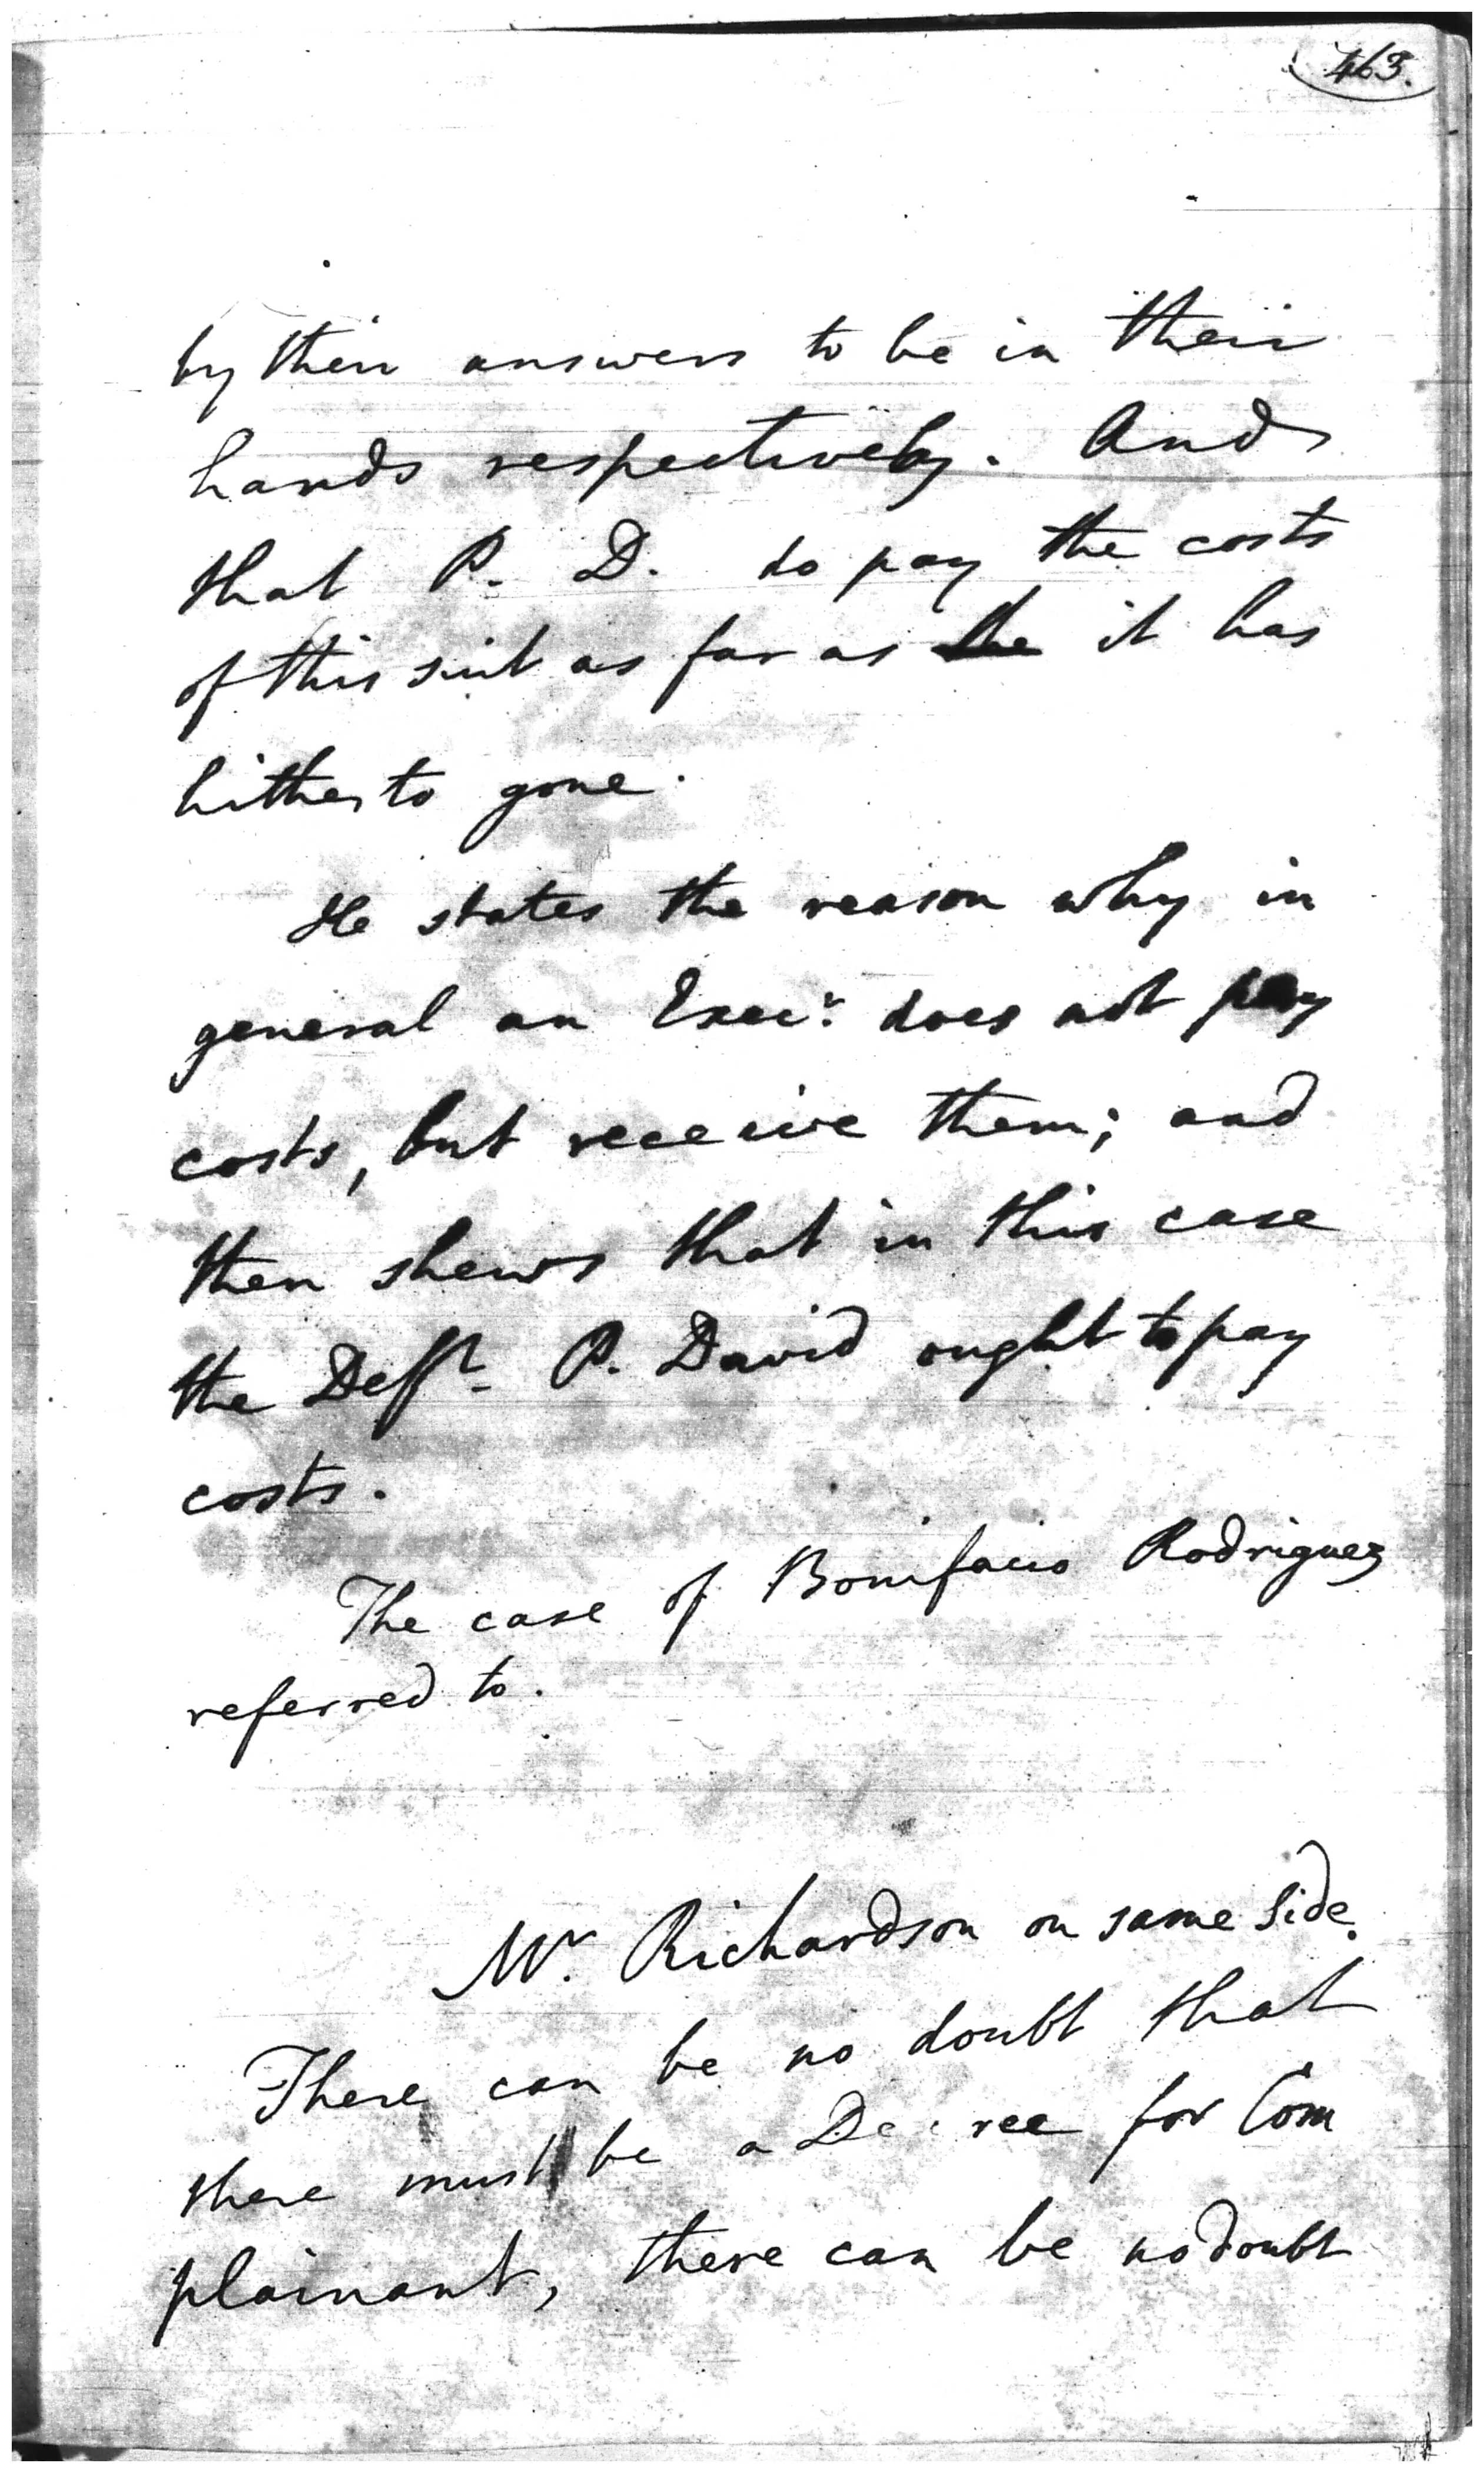 463.
by their answers to be in their
hands respectively. And
that P. D. do pay the costs
of this suit as far as the it has
hitherto gone.
He states the reason why in
general an Execr. does not pay
costs, but receive them; and
then shews that in this case
the Defft. P. David ought to pay
costs.
The case of Bonifacio Rodriguez
referred to.
Mr. Richardson on same side.
There can be no doubt that
there must be a Decree for Com
plainant, there can be no doubt